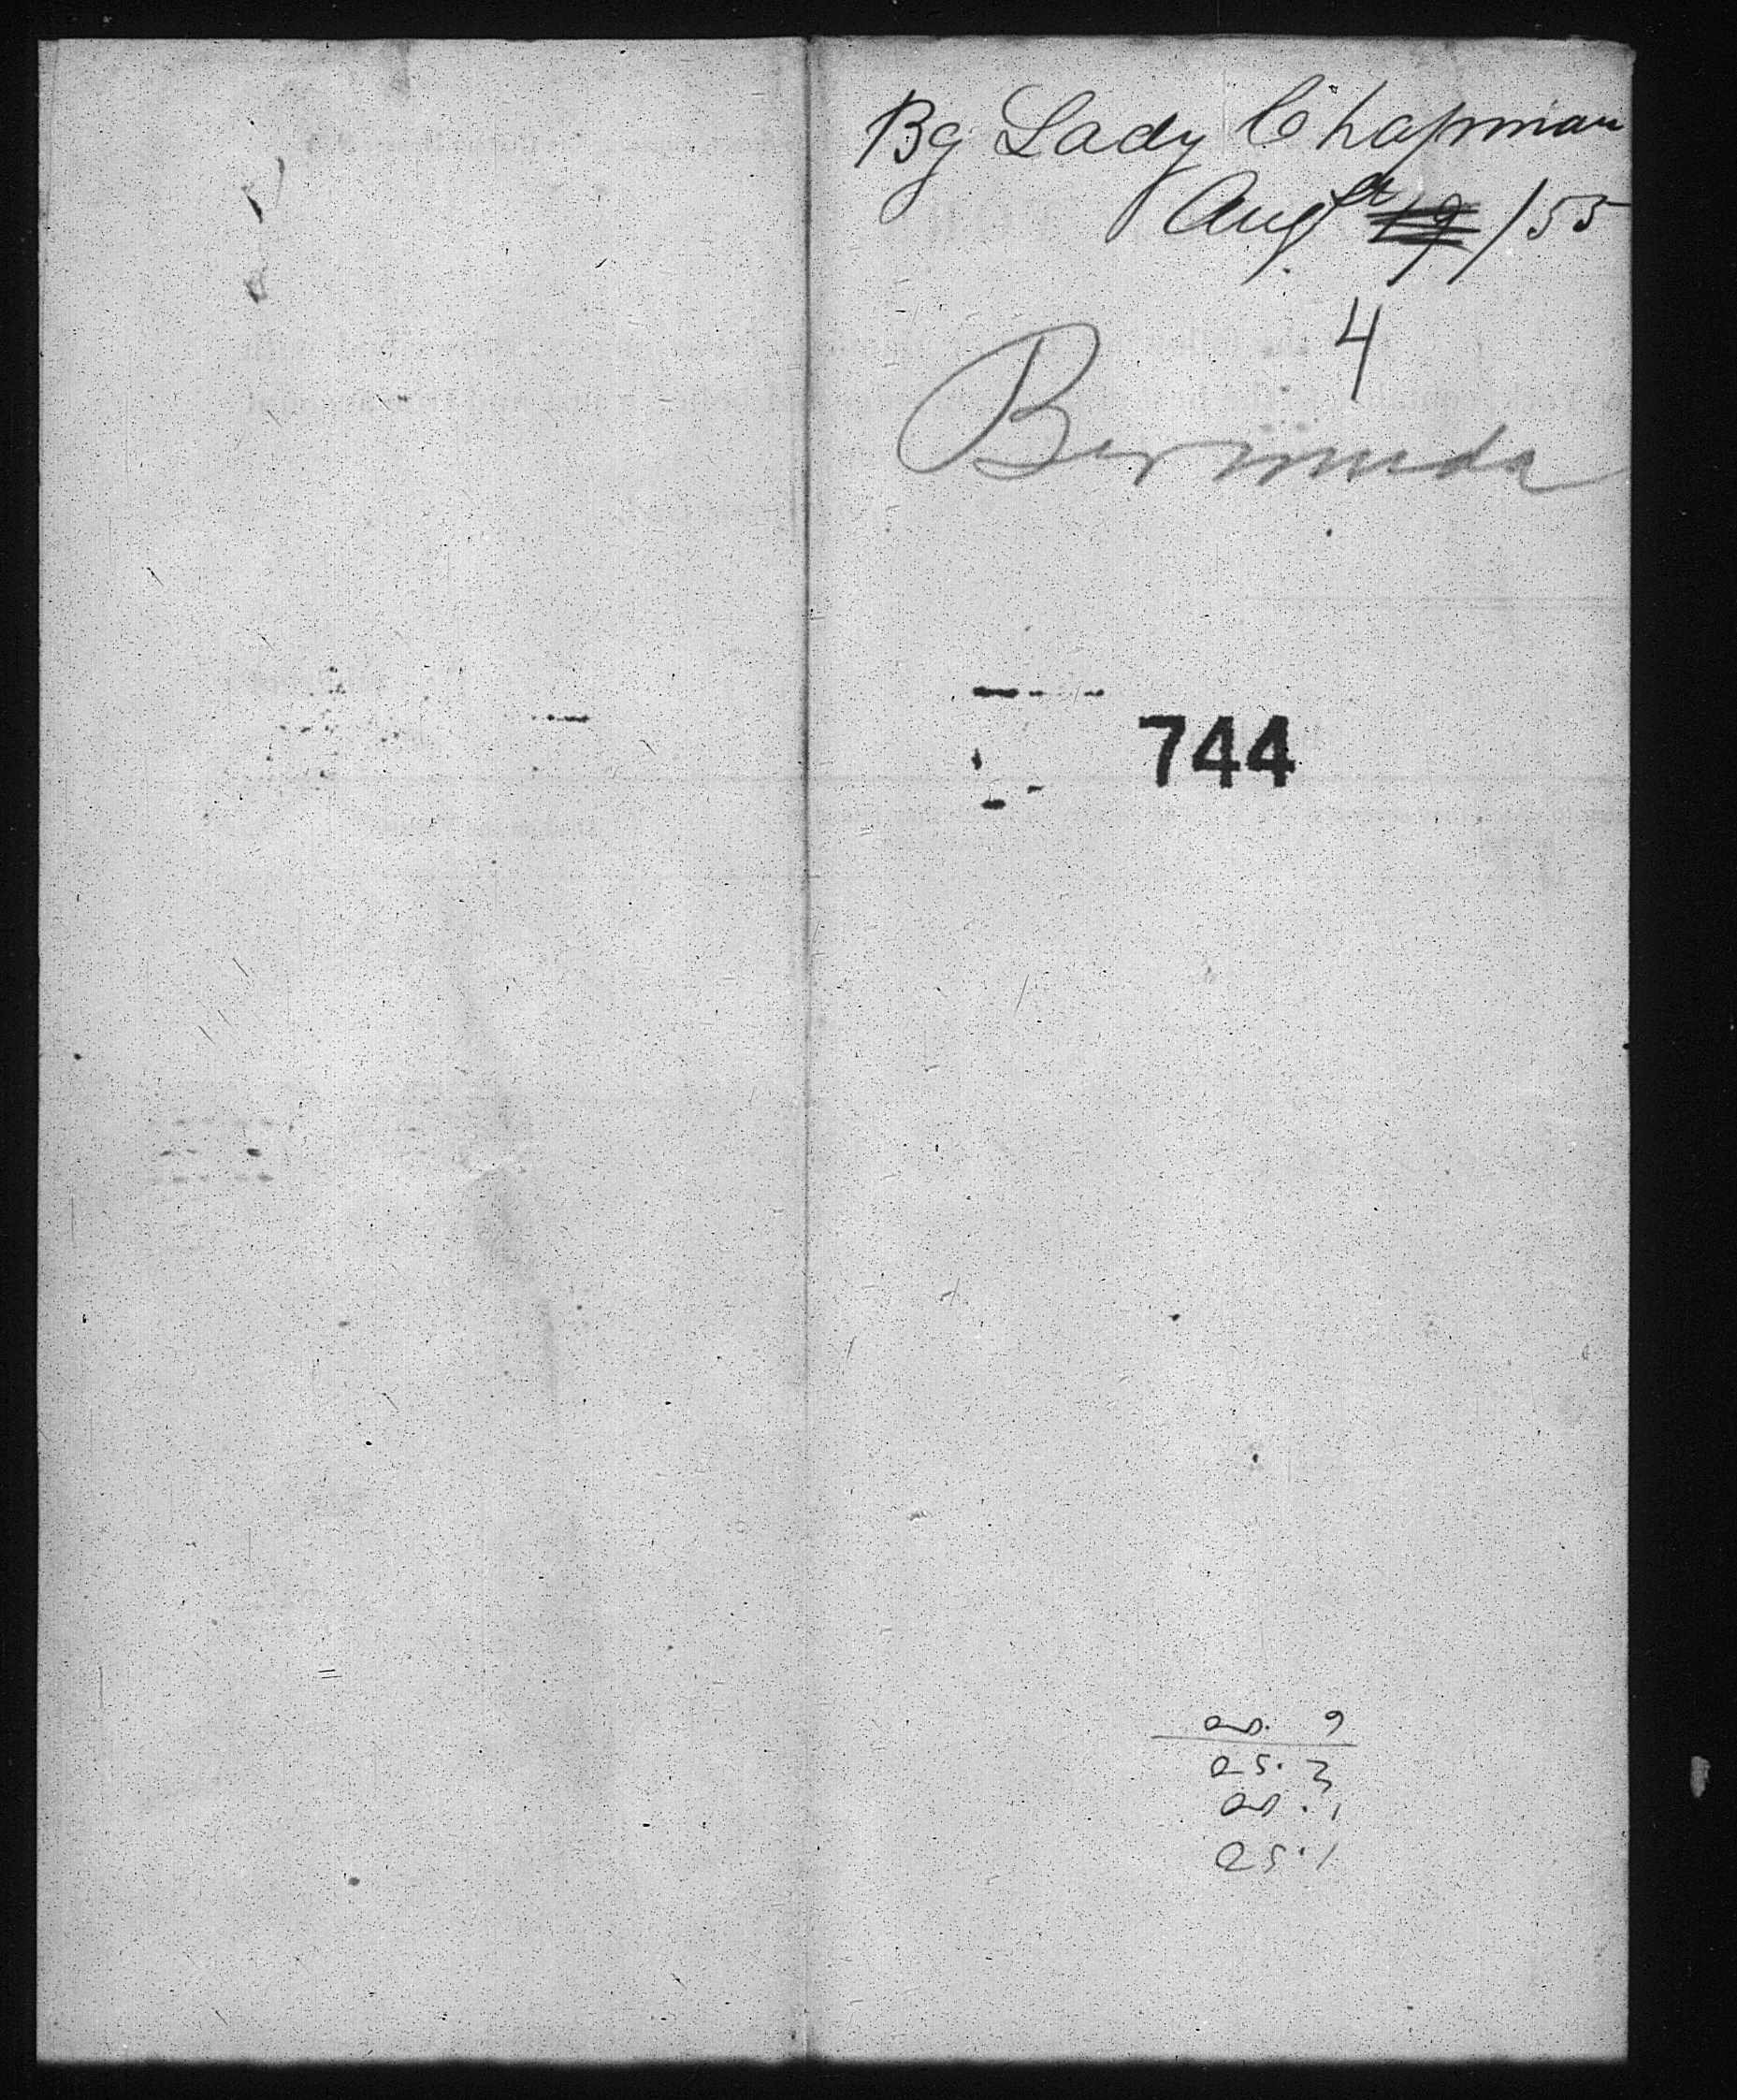 Bg Lady Chapman
Augst 19/55
4
Bermuda
744
9
25. 3
. 1
25. 1